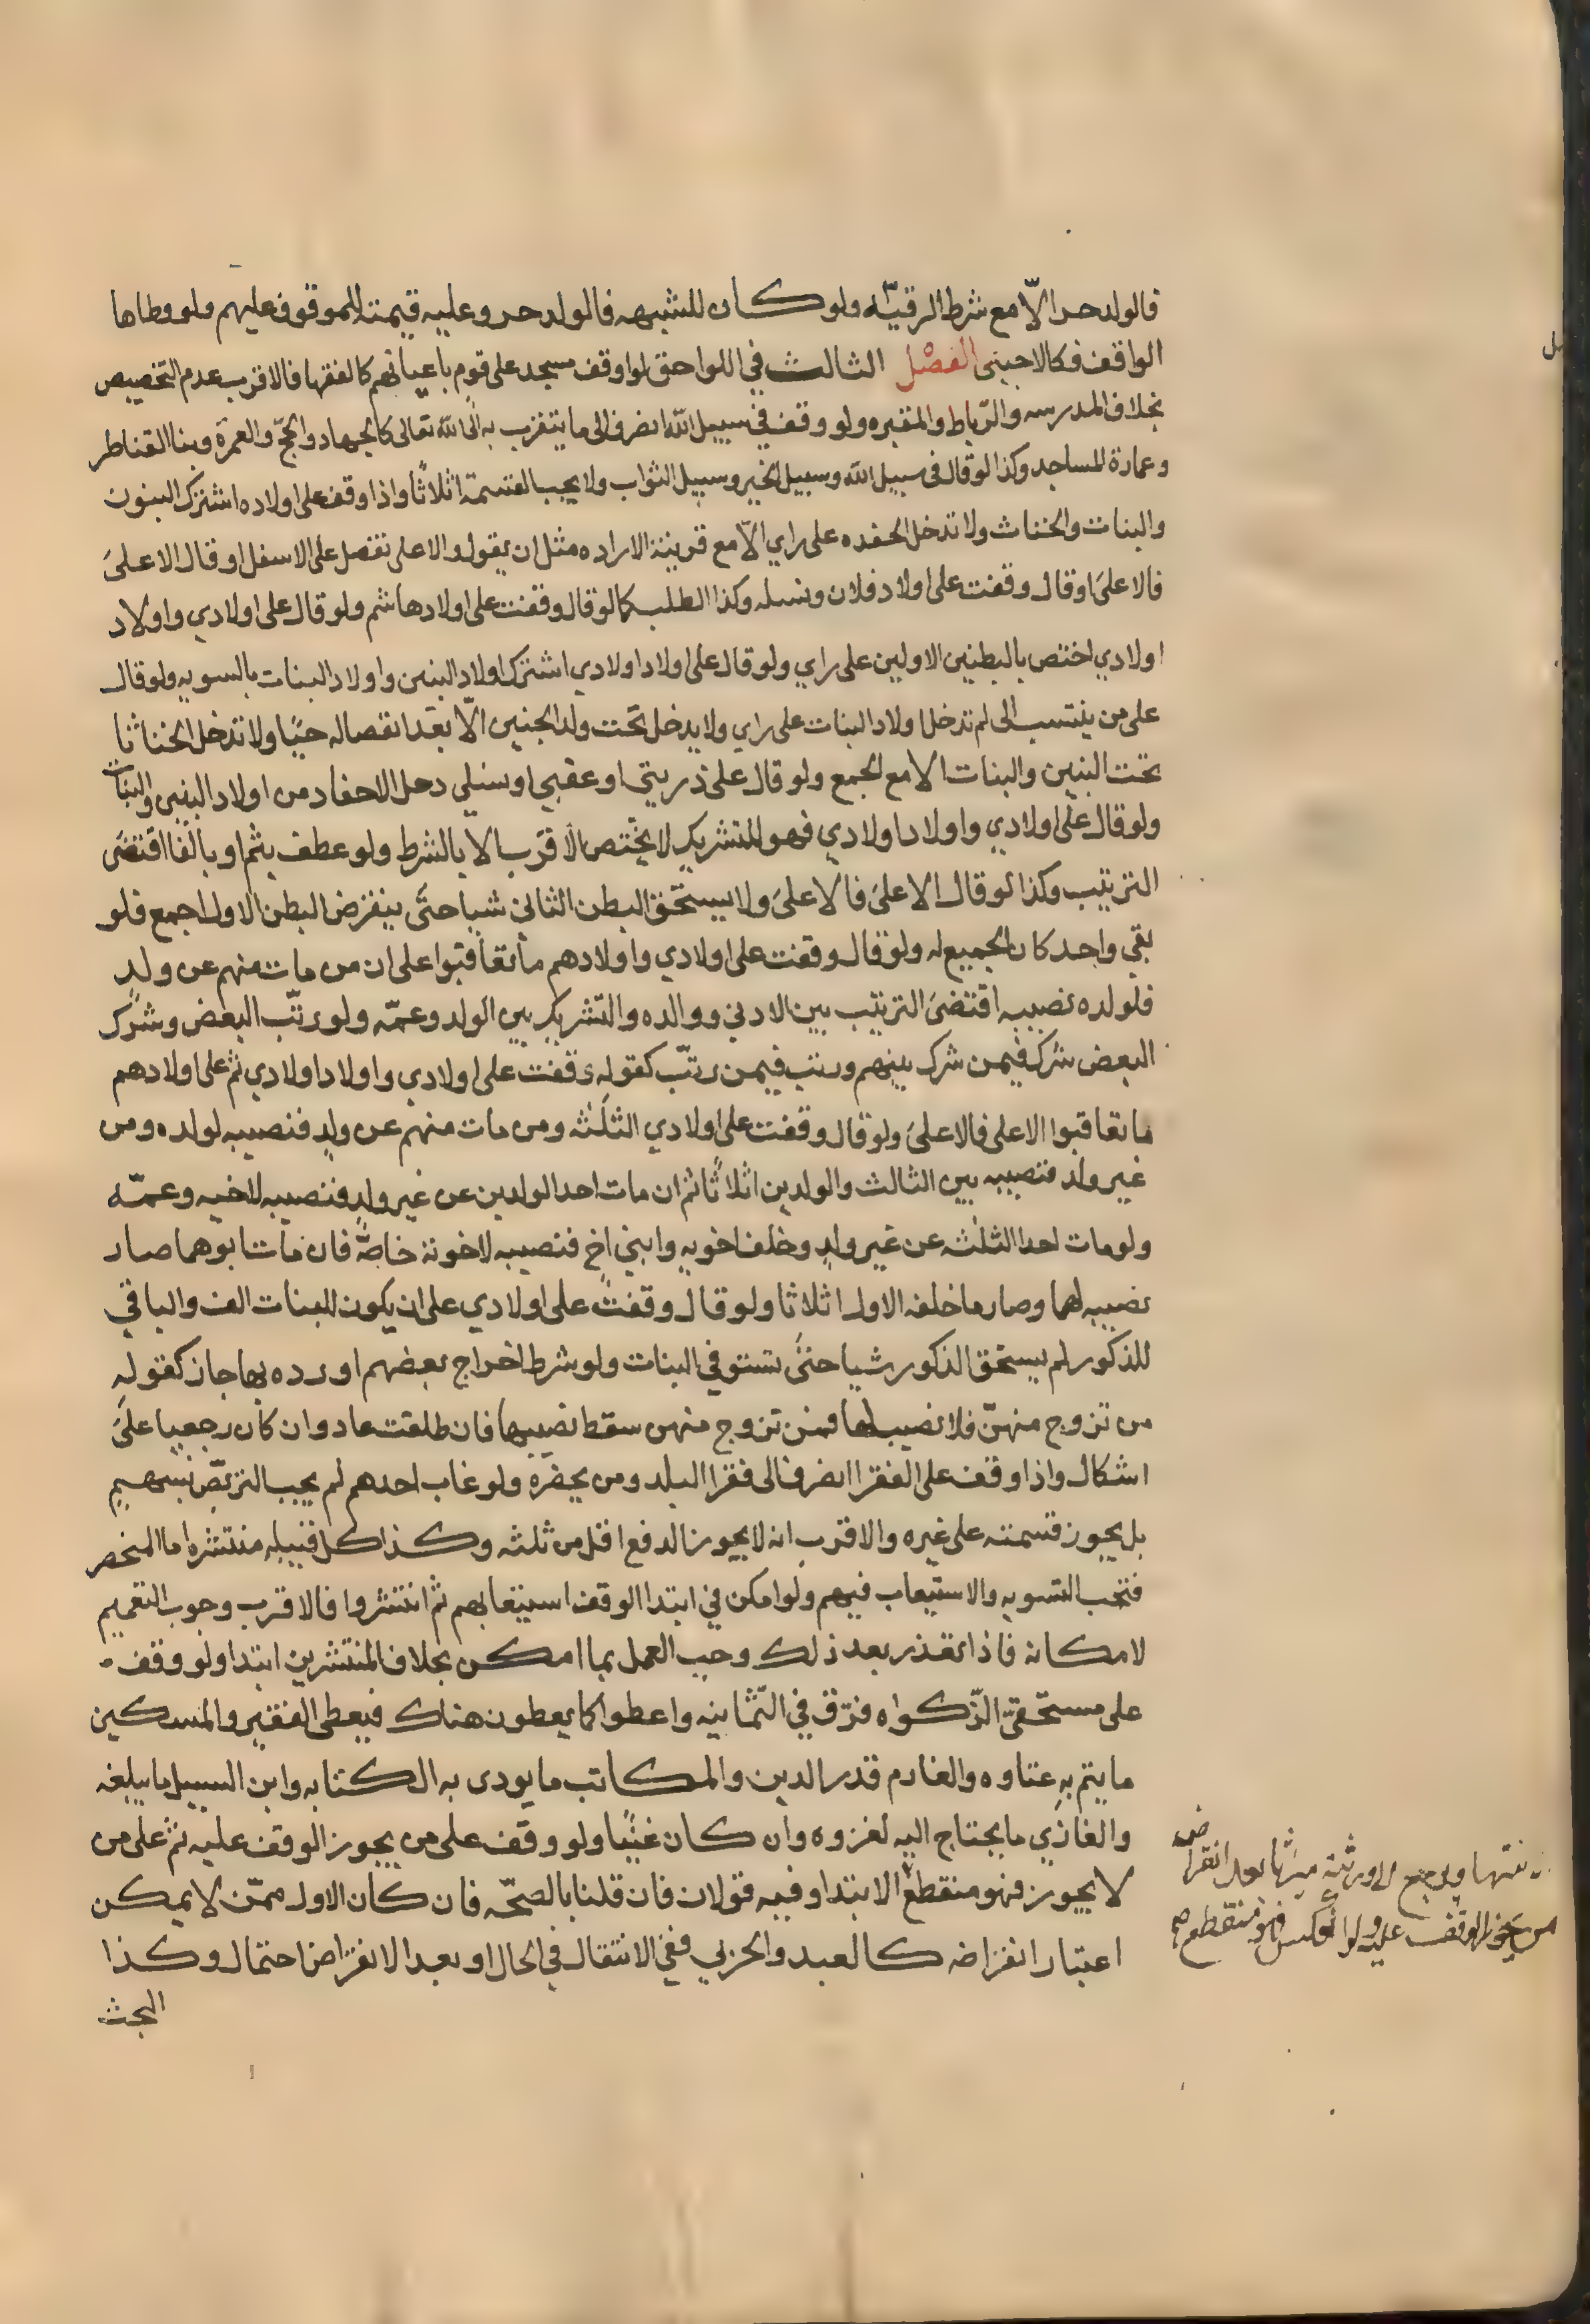 فالولد حر الّا مع شرط الرقيّه ولو كان للشبهه فالولد حر وعليه قيمته للموقوف عليهم ولو وطاها
الواقف فكالاجنبي الفصْل الثالث في اللواحق لو اوقف مسجد على قوم باعيانهم كالفقها فالاقرب عدم التخصيص
بخلاف المدرسه والرّباط والمقبره ولو وقف في سبيل الله انصرف الى ما يتقرب به الى الله تعالى كالجهاد والحجّ والعمرة وبنا القناطر
وعمارة المساجد وكذا لو قال في سبيل الله وسبيل الخير وسبيل الثواب ولا يجب القسمة اثلاثًا واذا وقف على اولاده اشترك البنون
والبنات والخناث ولا تدخل الحفده على راي الّا مع قرينة الاراده مثل ان يقول الاعلى تفضل على الاسفل او قال الاعلىَ
فالاعلىَ او قال وقفت على اولاد فلان ونسله وكذا الطلب كما لو قال وقفت على اولاد هاشم ولو قال على اولادي واولاد
اولادي اختص بالبطنين الاولين على راي ولو قال على اولاد اولادي اشترك اولاد البنين واولاد البنات بالسويه ولو قال
على من ينتسب الى لم تدخل اولاد البنات على راي ولا يدخل تحت ولد الجنين الّا بعد انفصاله حيًا ولا تدخل الخناثا
تحت البنين والبنات الا مع الجمع ولو قال على ذريتي او عقبي او نسلي دخل الاحفاد من اولاد البنين والبنات
ولو قال على اولادي واولاد اولادي فهو للتشريك لا يختص الاقرب الا بالشرط ولو عطف بثم او بالفا اقتضى
الترتيب وكذا لو قال الاعلىَ فالاعلىَ ولا يستحق البطن الثاني شيا حتى ينقرض البطن الاول اجمع فلو
بقي واحد كان الجميع له ولو قال وقفت على اولادي واولادهم ما تعاقبوا على ان من مات منهم عن ولدٍ
فلولده نصيبه اقتضىَ الترتيب بين الادنى ووالده والتشريك بين الولد وعمّه ولو رتّب البعض وشرّك
البعض شرّك فيمن شرك بينهم ورتب فيمن رتّب كقوله وقفت على اولادي واولاد اولادي ثم على اولادهم
ما تعاقبوا الاعلى فالاعلىَ ولو قال وقفت على اولادي الثلثه ومن مات منهم عن ولدٍ فنصيبه لولده ومن
غير ولد فنصيبه بين الثالث والولدين اثلاثًا ثم ان مات احد الولدين عن غير ولد فنصيبه لاخيه وعمّه
ولو مات احد الثلثه عن غير ولدٍ وخلف اخويه وابني اخ فنصيبه لاخوته خاصّة فان مات ابوهما صار
نصيبه لهما وصار ما خلفه الاول اثلاثا ولو قال وقفت على اولادي على ان يكون للبنات الف والباقي
للذكور لم يستحق الذكور شيا حتى تستوفي البنات ولو شرط اخراج بعضهم او رده بها جاز كقوله
من تزوج منهنّ فلا نصيب لها فمن تزوج منهن سقط نصيبها فان طلقت عاد وان كان رجعيا علىَ
اشكال واذا وقف على الفقرا انصرف الى فقرا البلد ومن يحضره ولو غاب احدهم لم يجب التربّص بسهمه
بل يجوز قسمته على غيره والاقرب انه لا يجوز الدفع اقل من ثلثه وكذا كل قبيله منتشره اما المنحصر
فتجب التسويه والاستيعاب فيهم ولو امكن في ابتدا الوقف استيعابهم ثم انتشروا فالاقرب وجوب التعميم
لامكانه فاذا تعذر بعد ذلك وجب العمل بما امكن بخلاف المنتشرين ابتدا ولو وقف
على مستحقي الزّكواه فرّق في الثّمانيه واعطوا كما يعطون هناك فيعطى الفقير والمسكين
ما يتم به غناوه والغارم قدر الدين والمكاتب ما يودى به الكتابه وابن السبيل ما يبلغه
والغازي ما يحتاج اليه لغزوه وان كان غنيًا ولو وقف على من يجوز الوقف عليه ثم على من
لا يجوز فهو منقطع الابتدا وفيه قولان فان قلنا بالصحّه فان كان الاول ممّن لا يمكن
اعتبار انقراضه كالعبد والحربي ففي الانتقال في الحال او بعد الانقراض احتمال وكذا
البحث
الانتها ويرجع الى ورثته ميراثا بعد انقراض
من يجوز الوقف عليه ولو انعكس فهو منقطع صح